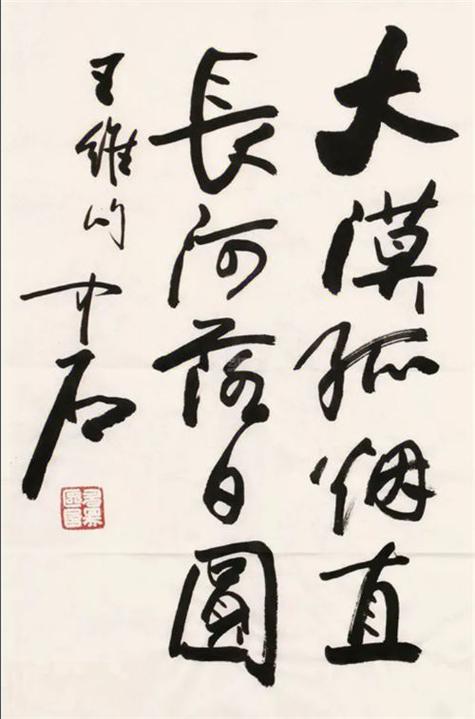 大漠孤烟直
長河落日圓
王維句 中石